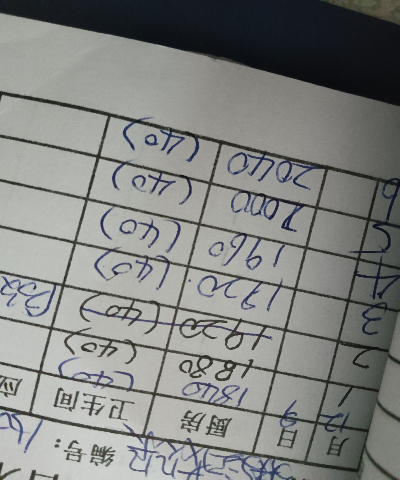 编号: 160
月 日 厨房 卫生间 应
12 9 1840 (40)
1 1880 (40)
2 1920 (40)
3 1920 (40)
4 1960 (40)
5 2000 (40)
6 2040 (40)